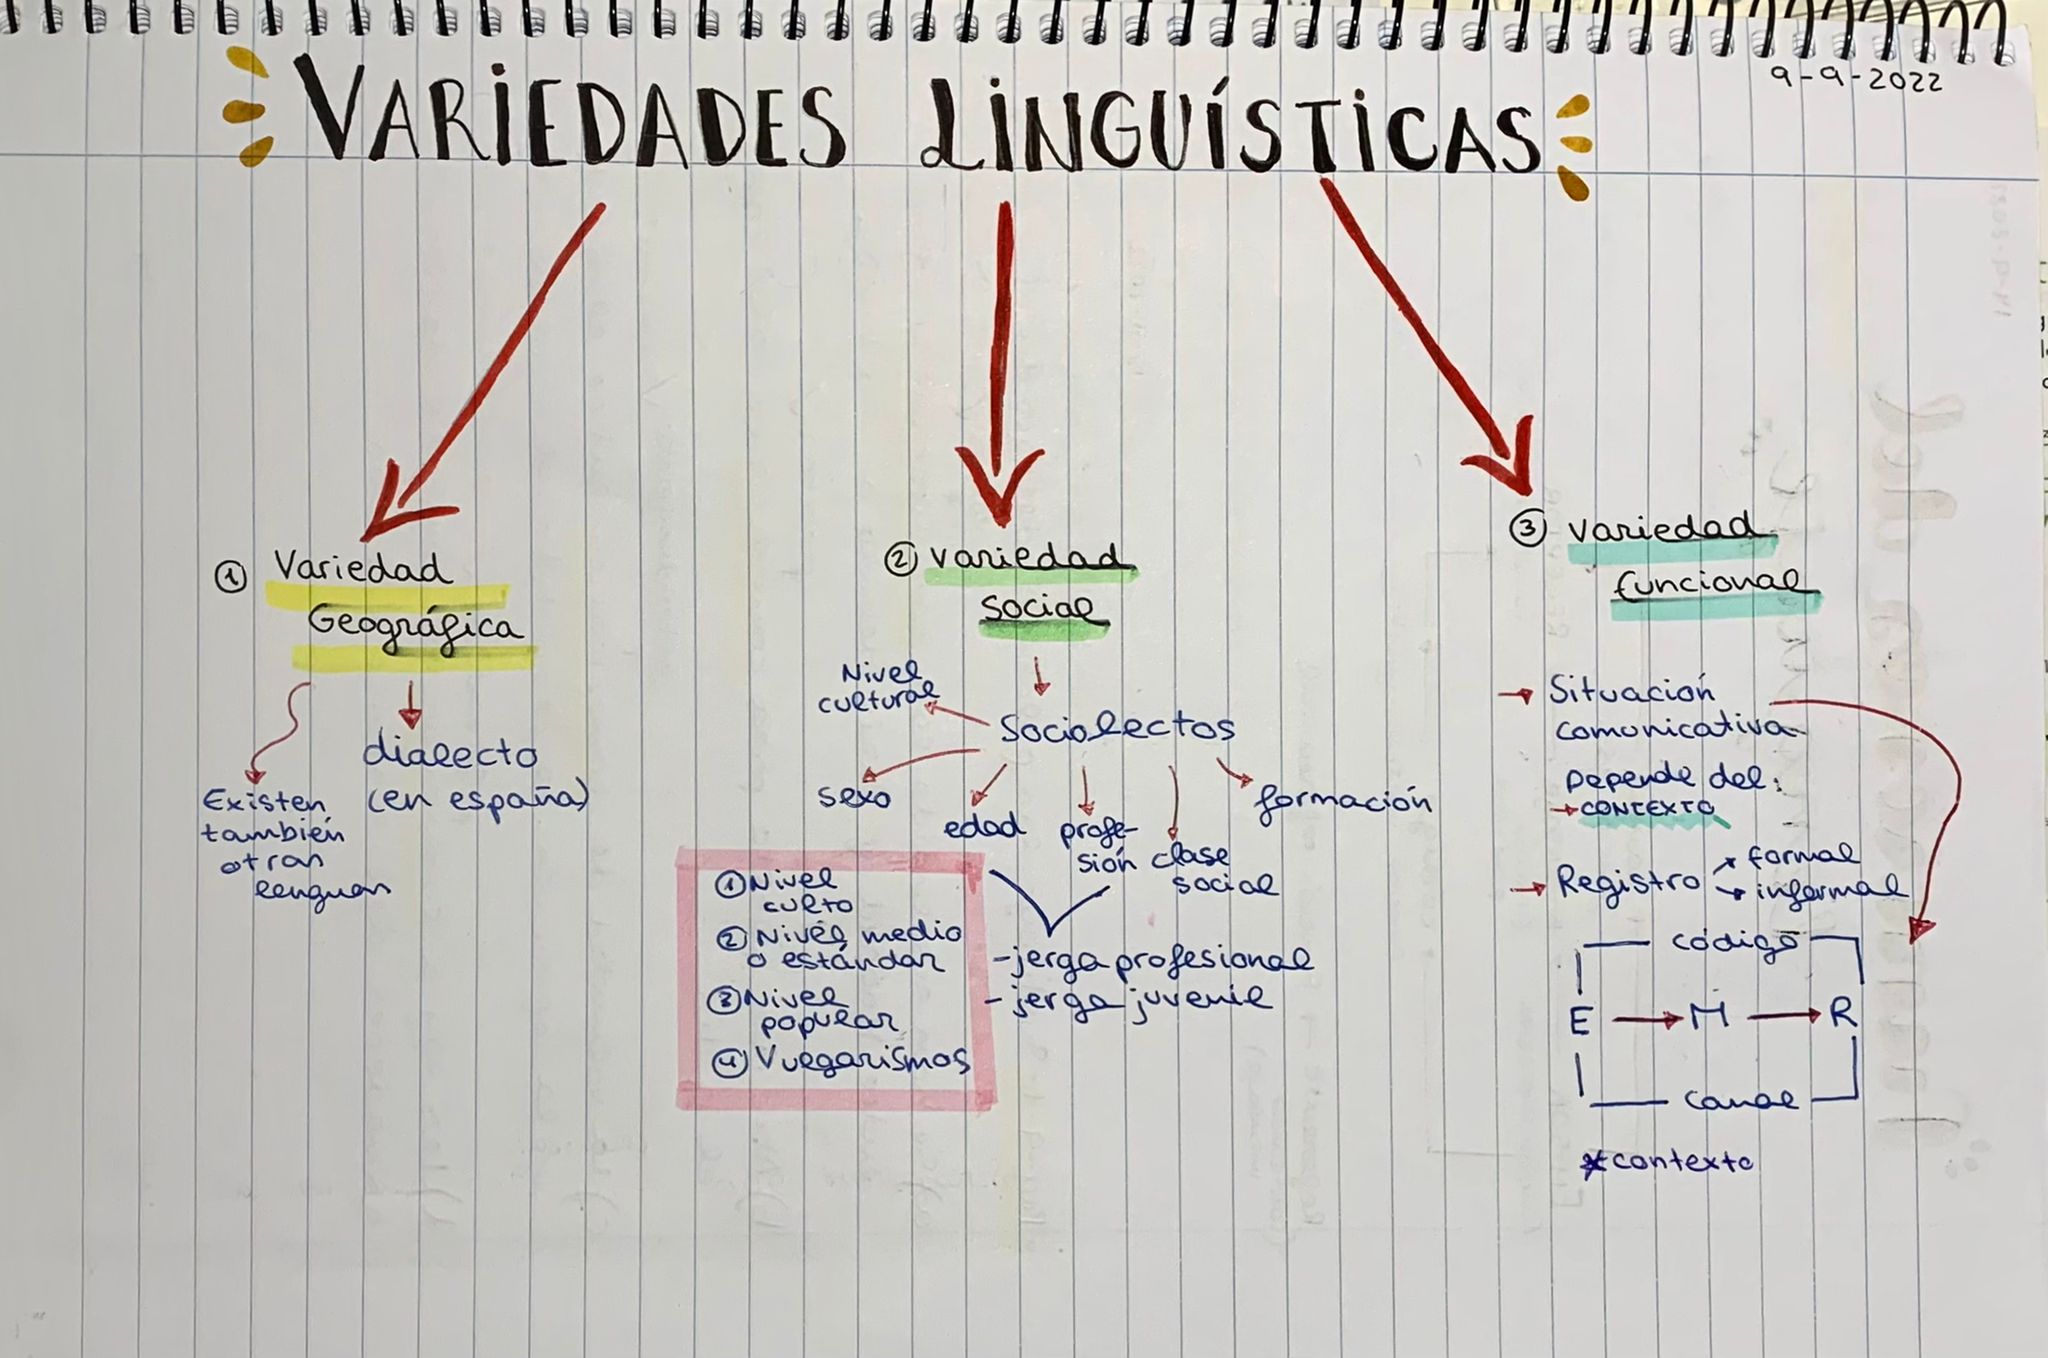 9-9-2022
VARIEDADES LINGUÍSTICAS
① Variedad
Geográfica
dialecto
(en españa)
Existen
también
otras
lenguas
② Variedad
social
Nivel
cultural
Sociolectos
sexo
edad
profe-
sión
clase
social
formación
① Nivel
culto
② Nivel medio
o estándar
③ Nivel
popular
④ Vulgarismos
- jerga profesional
- jerga juvenil
③ Variedad
funcional
→ Situación
comunicativa
Depende del:
→ CONTEXTO
→ Registro → formal
→ informal
código
E → M → R
canal
*contexto